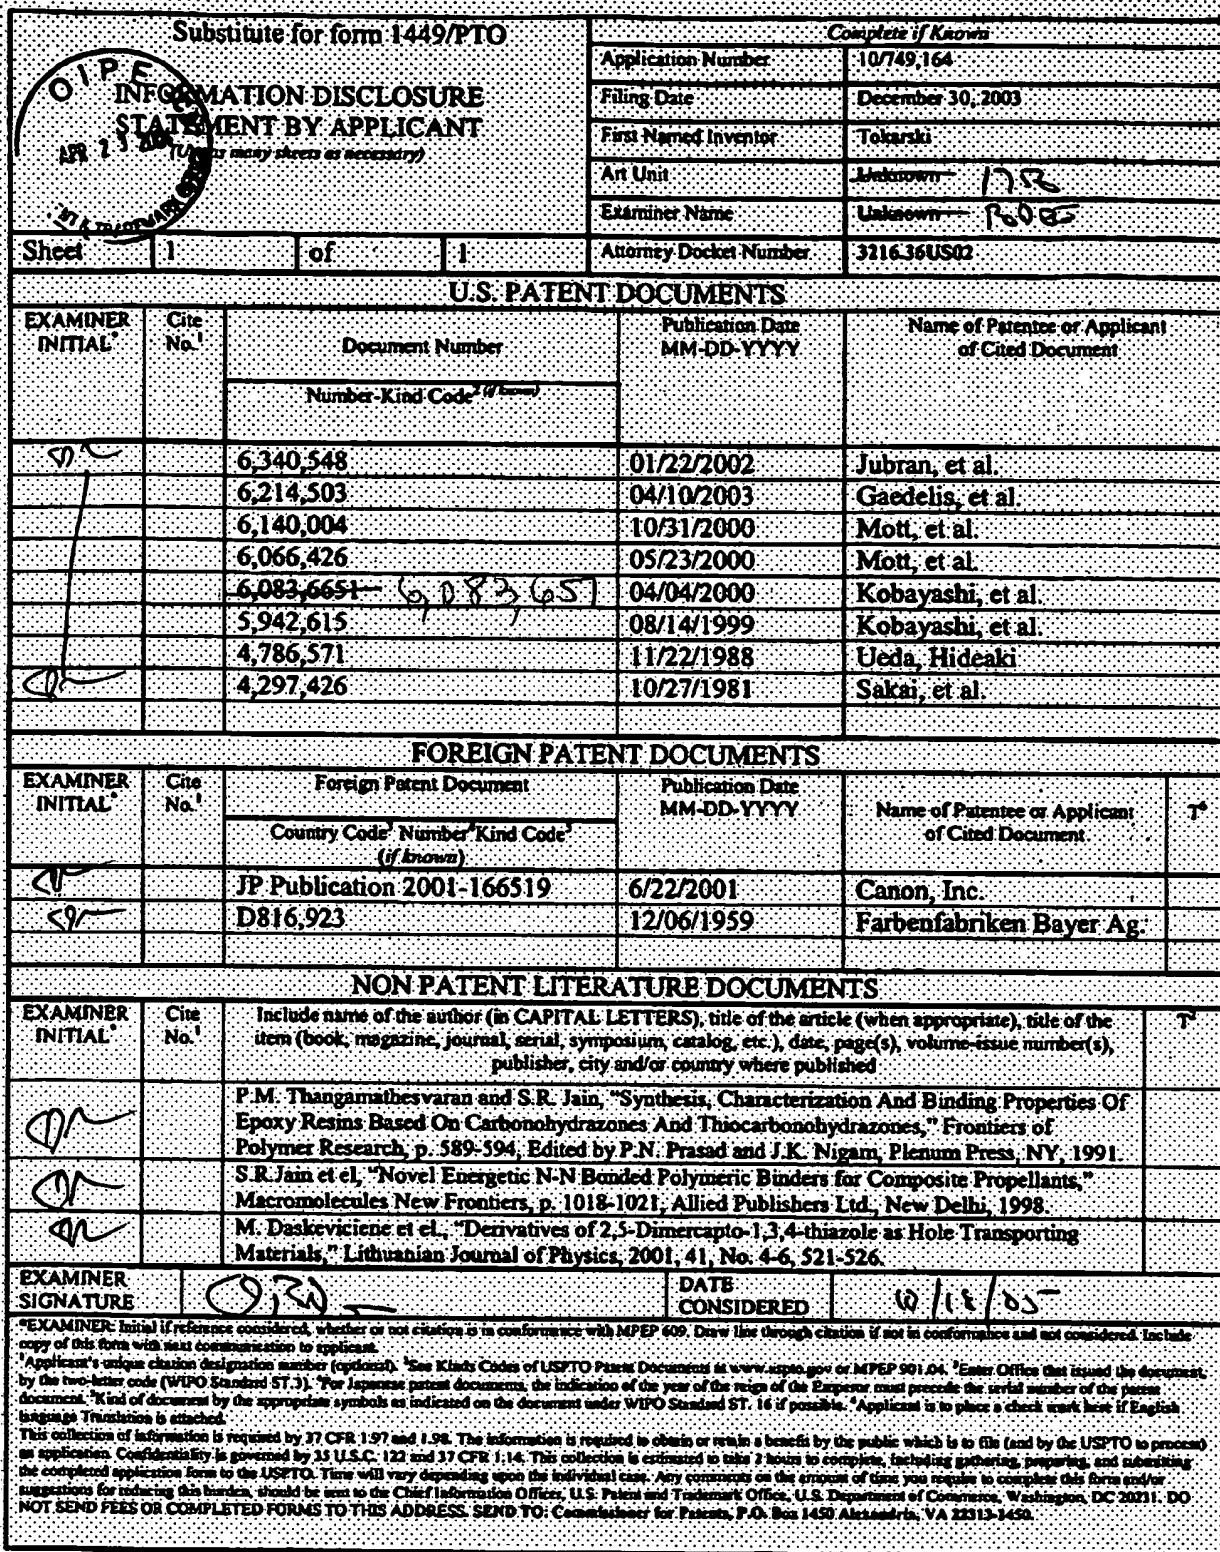 Substitute for form 1449/PTO
INFORMATION DISCLOSURE
STATEMENT BY APPLICANT
(Use as many sheets as necessary)
OIPE
APR 23
TRADEMARK
Sheet 1 of 1
Complete if Known
Application Number 10/749,164
Filing Date December 30, 2003
First Named Inventor Tokarski
Art Unit Unknown
Examiner Name Unknown
Attorney Docket Number 3216.36US02
U.S. PATENT DOCUMENTS
EXAMINER INITIAL* Cite No.¹ Document Number Publication Date MM-DD-YYYY Name of Patentee or Applicant of Cited Document
Number-Kind Code² (if known)
6,340,548 01/22/2002 Jubran, et al.
6,214,503 04/10/2003 Gaedelis, et al.
6,140,004 10/31/2000 Mott, et al.
6,066,426 05/23/2000 Mott, et al.
6,083,6651 6,083,651 04/04/2000 Kobayashi, et al.
5,942,615 08/14/1999 Kobayashi, et al.
4,786,571 11/22/1988 Ueda, Hideaki
4,297,426 10/27/1981 Sakai, et al.
FOREIGN PATENT DOCUMENTS
EXAMINER INITIAL* Cite No.¹ Foreign Patent Document Publication Date MM-DD-YYYY Name of Patentee or Applicant of Cited Document T⁶
Country Code³ Number⁴ Kind Code⁵
(if known)
JP Publication 2001-166519 6/22/2001 Canon, Inc.
D816,923 12/06/1959 Farbenfabriken Bayer Ag.
NON PATENT LITERATURE DOCUMENTS
EXAMINER INITIAL* Cite No.¹ Include name of the author (in CAPITAL LETTERS), title of the article (when appropriate), title of the
item (book, magazine, journal, serial, symposium, catalog, etc.), date, page(s), volume-issue number(s),
publisher, city and/or country where published
T²
P.M. Thangamathesvaran and S.R. Jain, "Synthesis, Characterization And Binding Properties Of
Epoxy Resins Based On Carbonohydrazones And Thiocarbonohydrazones," Frontiers of
Polymer Research, p. 589-594, Edited by P.N. Prasad and J.K. Nigam, Plenum Press, NY, 1991.
S.R.Jain et el, "Novel Energetic N-N Bonded Polymeric Binders for Composite Propellants,"
Macromolecules New Frontiers, p. 1018-1021, Allied Publishers Ltd., New Delhi, 1998.
M. Daskeviciene et el., "Derivatives of 2,5-Dimercapto-1,3,4-thiazole as Hole Transporting
Materials," Lithuanian Journal of Physics, 2001, 41, No. 4-6, 521-526.
EXAMINER SIGNATURE
DATE CONSIDERED 10/18/05
*EXAMINER: Initial if reference considered, whether or not citation is in conformance with MPEP 609. Draw line through citation if not in conformance and not considered. Include
copy of this form with next communication to applicant.
¹Applicant's unique citation designation number (optional). ²See Kinds Codes of USPTO Patent Documents at www.uspto.gov or MPEP 901.04. ³Enter Office that issued the document,
by the two-letter code (WIPO Standard ST.3). ⁴For Japanese patent documents, the indication of the year of the reign of the Emperor must precede the serial number of the patent
document. ⁵Kind of document by the appropriate symbols as indicated on the document under WIPO Standard ST. 16 if possible. ⁶Applicant is to place a check mark here if English
language Translation is attached.
This collection of information is required by 37 CFR 1.97 and 1.98. The information is required to obtain or retain a benefit by the public which is to file (and by the USPTO to process)
an application. Confidentiality is governed by 35 U.S.C. 122 and 37 CFR 1.14. This collection is estimated to take 2 hours to complete, including gathering, preparing, and submitting
the completed application form to the USPTO. Time will vary depending upon the individual case. Any comments on the amount of time you require to complete this form and/or
suggestions for reducing this burden, should be sent to the Chief Information Officer, U.S. Patent and Trademark Office, U.S. Department of Commerce, Washington, DC 20231. DO
NOT SEND FEES OR COMPLETED FORMS TO THIS ADDRESS. SEND TO: Commissioner for Patents, P.O. Box 1450 Alexandria, VA 22313-1450.